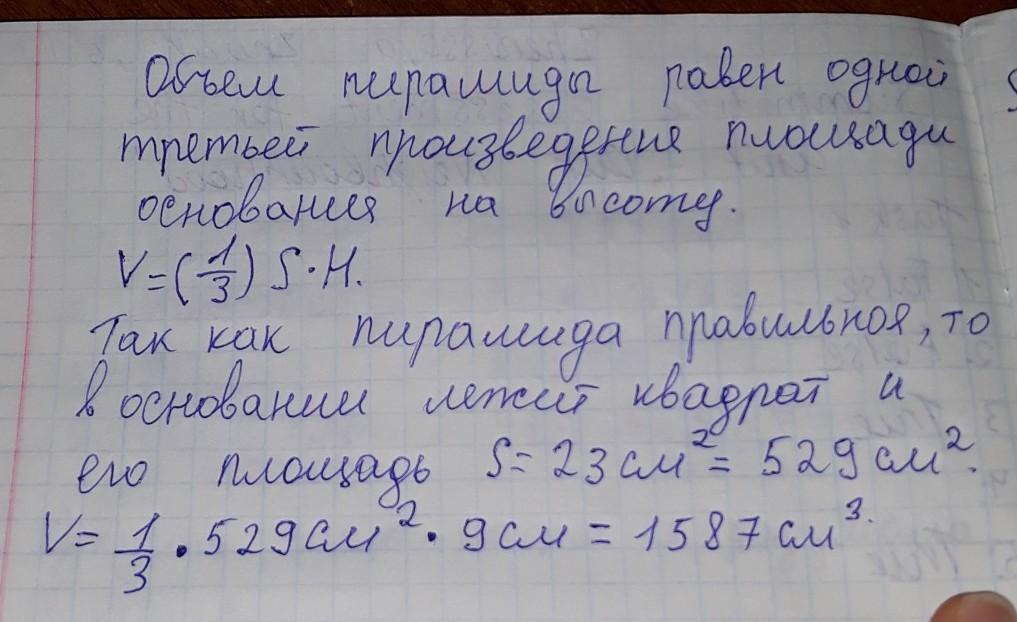 Объем пирамиды равен одной
третьей произведения площади
основания на высоту.
V=(1/3) S·H.
Так как пирамида правильная, то
в основании лежит квадрат и
его площадь S=23см²=529см².
V=1/3·529см²·9см=1587см³.